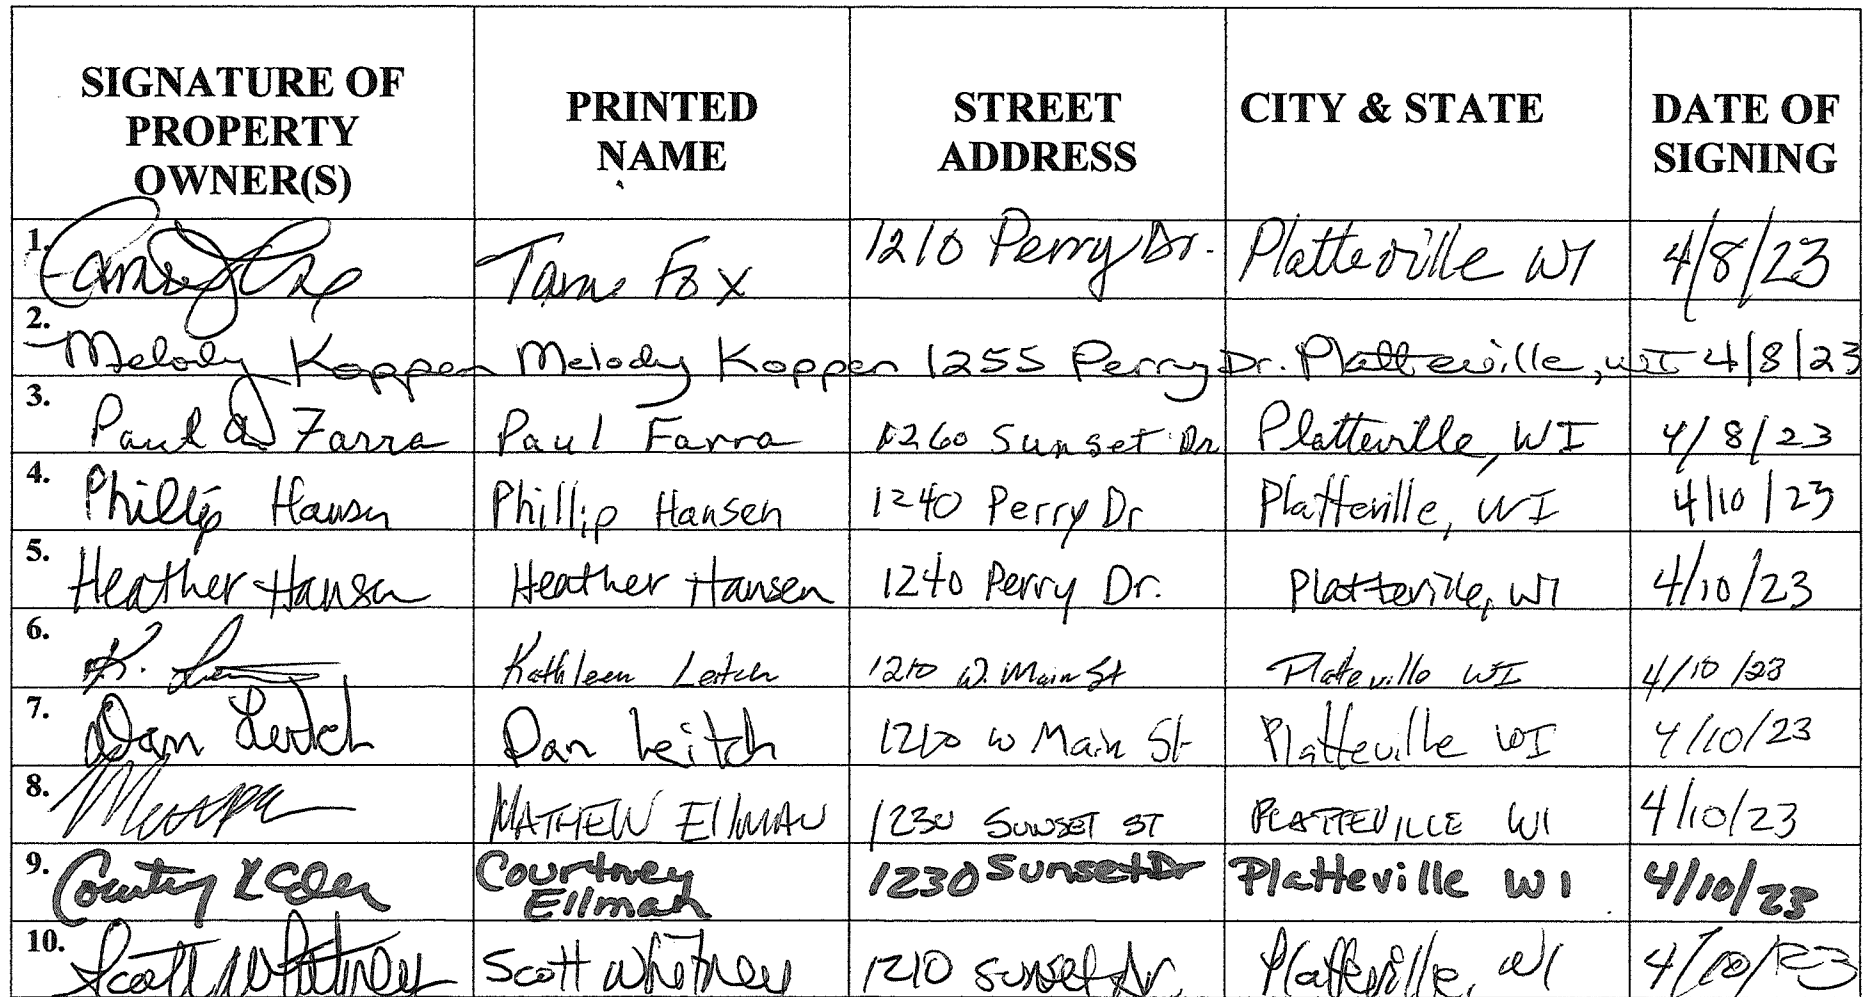 SIGNATURE OF PROPERTY OWNER(S) PRINTED NAME STREET ADDRESS CITY & STATE DATE OF SIGNING
1. Fox 1210 Perry Dr. Platteville WI 4/8/23
2. Melody Koppen Melody Koppen 1255 Perry Dr. Platteville, WI 4/8/23
3. Paul A Farra Paul Farra 1260 Sunset Dr Platteville, WI 4/8/23
4. Phillip Hansen Phillip Hansen 1240 Perry Dr Platteville, WI 4/10/23
5. Heather Hansen Heather Hansen 1240 Perry Dr. Platteville, WI 4/10/23
6. K. Kathleen Leitch 1210 W. Main St Platteville WI 4/10/23
7. Dan Leitch Dan Leitch 1210 W Main St Platteville WI 4/10/23
8. MATHEW Ellman 1230 SUNSET ST PLATTEVILLE WI 4/10/23
9. Courtney Ellman 1230 Sunset Dr Platteville WI 4/10/23
10. Scott Whitney Scott Whitney 1210 Sunset Dr. Platteville, WI 4/10/23